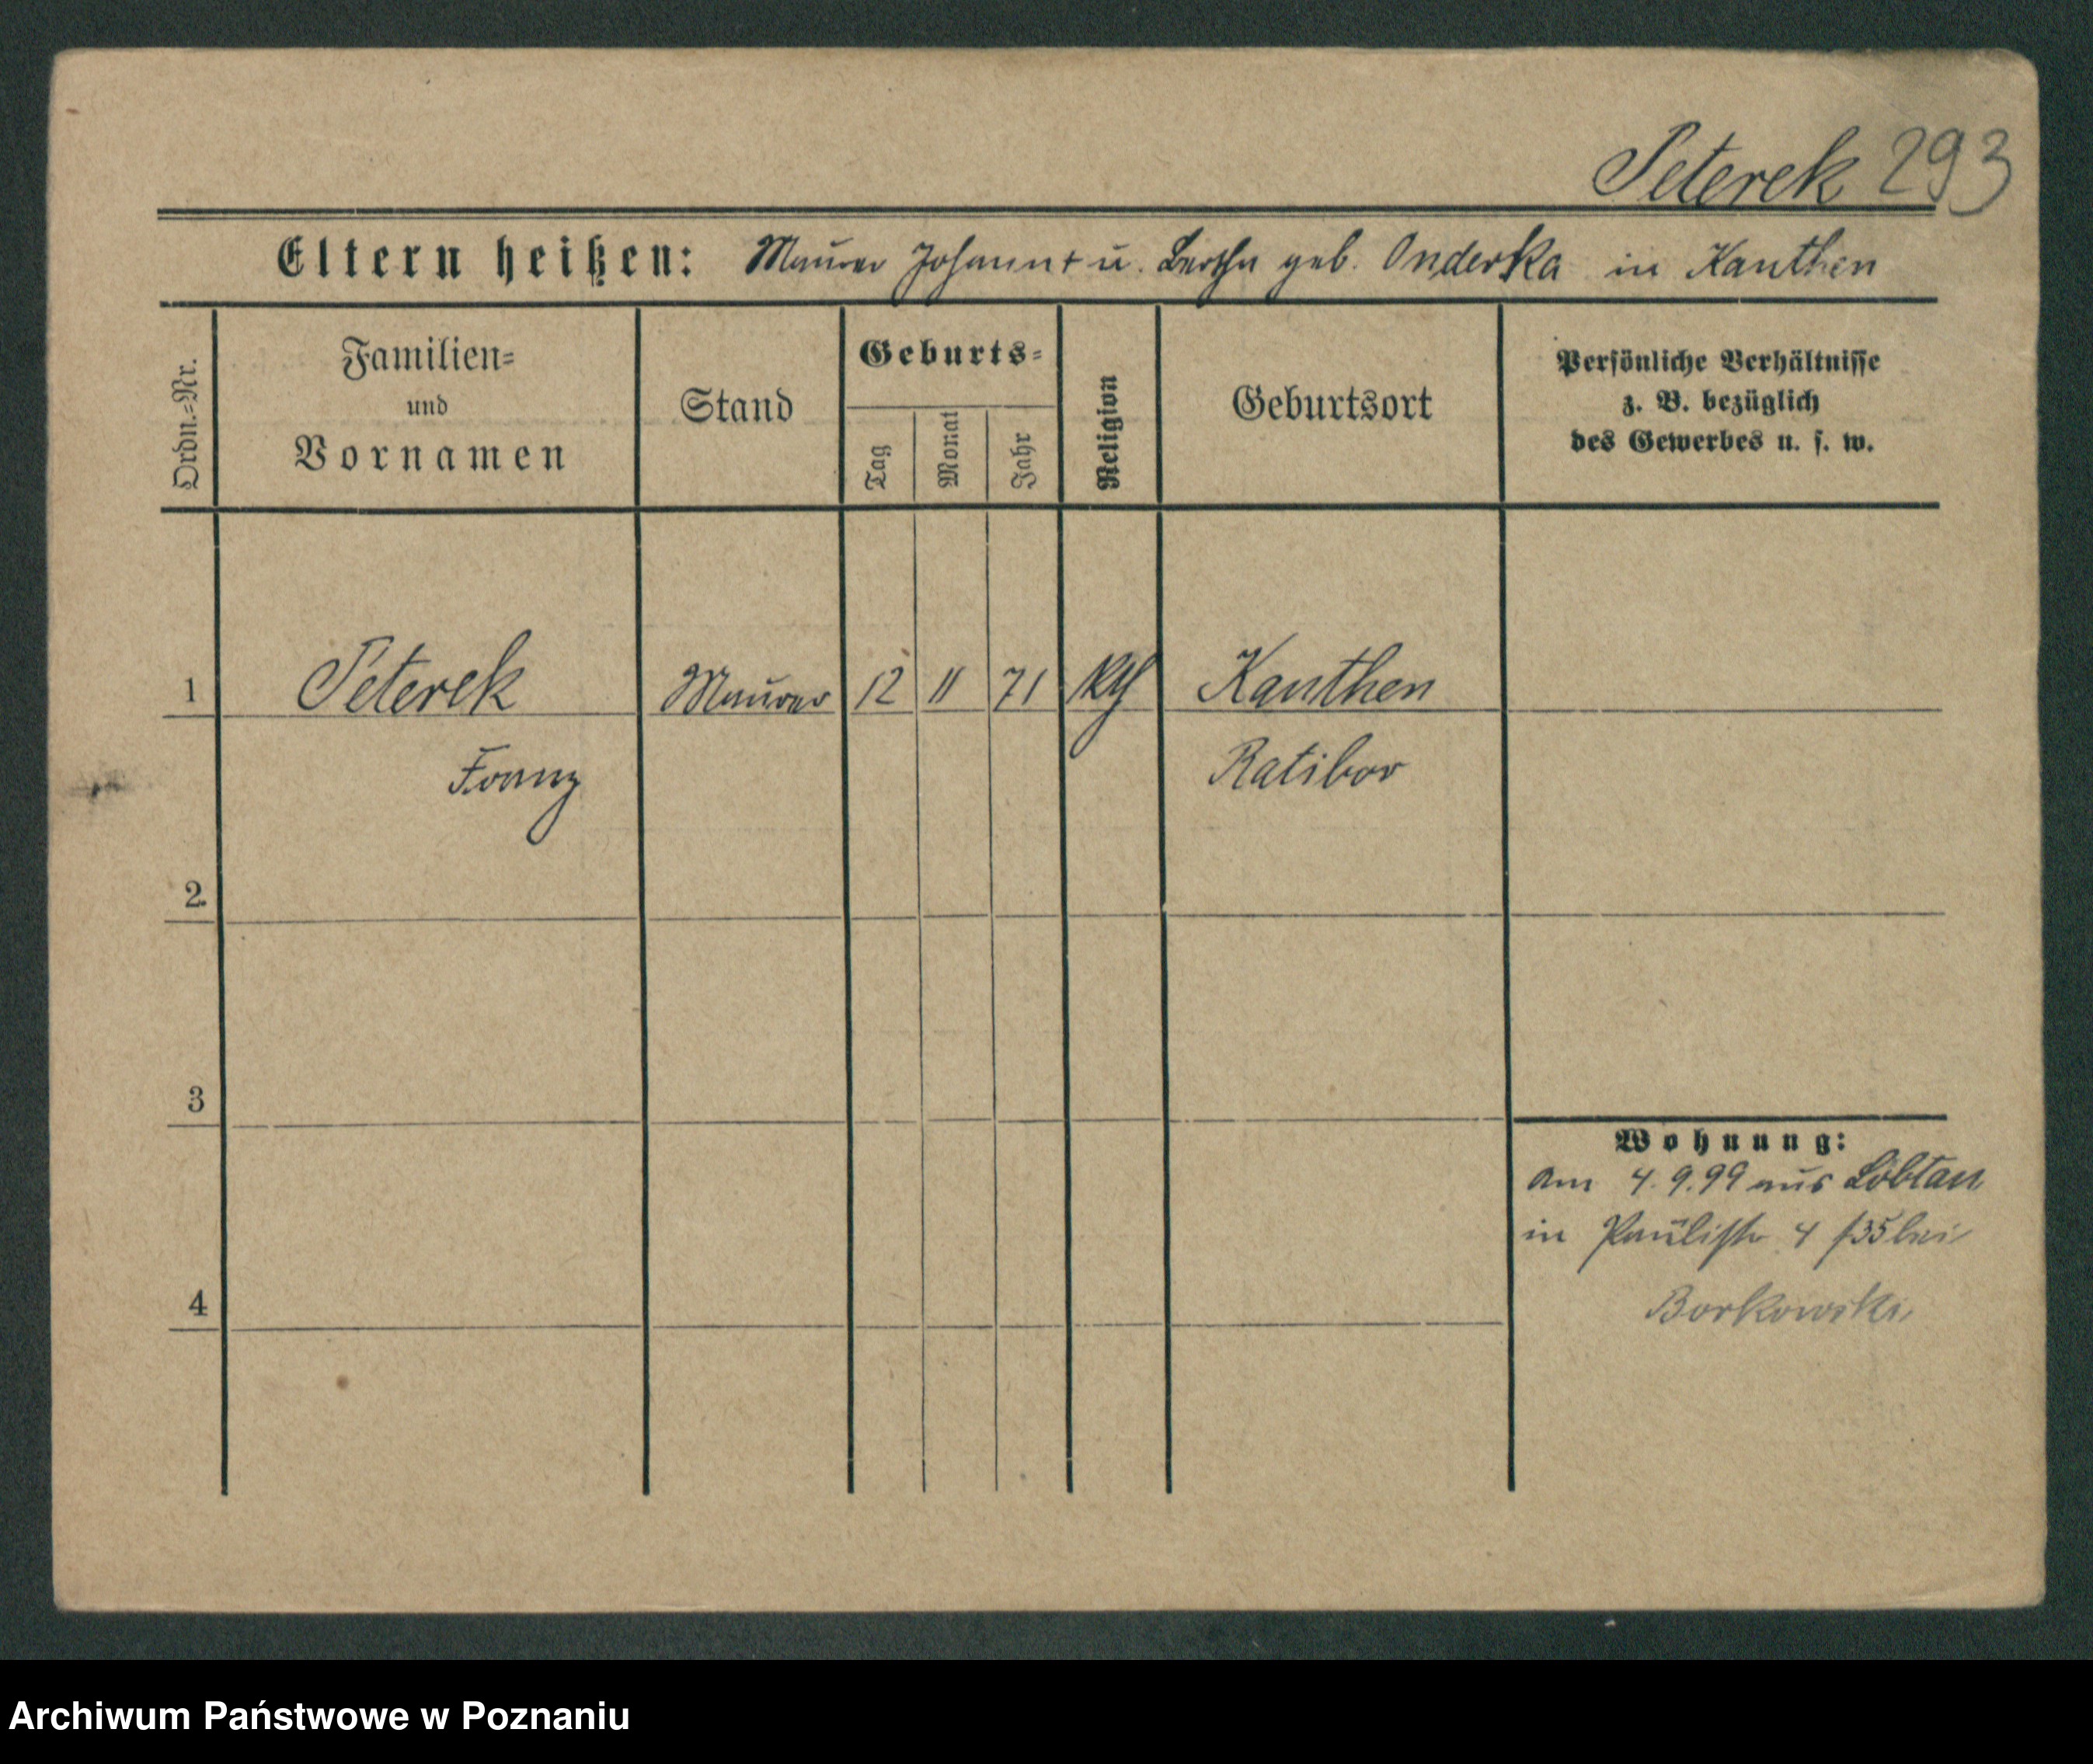 Peterek 293
Eltern heißen: Maurer Johann † u. Bertha geb. Onderka in Kanthen
Ordn.=Nr.
Familien=
und
Vornamen
Stand
Geburts=
Tag
Monat
Jahr
Religion
Geburtsort
Persönliche Verhältnisse
z. B. bezüglich
des Gewerbes u. s. w.
1 Peterek Maurer 12 11 71 Kanthen
Franz Ratibor
2.
3
4
Wohnung:
am 4.9.99 aus Löbtau
in 4 /35 bei
Borkowski
Archiwum Państwowe w Poznaniu